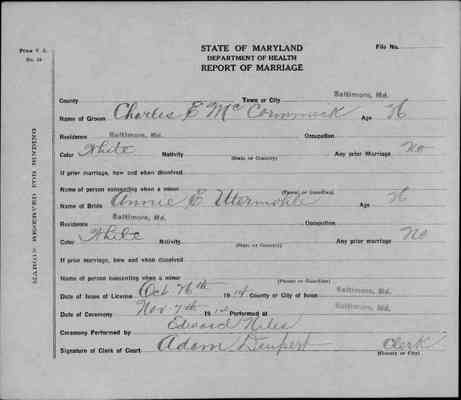 Form V. S.
No. 14
STATE OF MARYLAND
DEPARTMENT OF HEALTH
REPORT OF MARRIAGE
File No.
MARGIN RESERVED FOR BINDING
County Town or City Baltimore, Md.
Name of Groom Charles E McCormick Age
Residence Baltimore, Md. Occupation
Color White Nativity (State or Country) Any prior Marriage No
If prior marriage, how and when dissolved
Name of person consenting when a minor (Parent or Guardian)
Name of Bride Annie E Utermohle Age
Residence Baltimore, Md. Occupation
Color White Nativity (State or Country) Any prior marriage No
If prior marriage, how and when dissolved
Name of person consenting when a minor (Parent or Guardian)
Date of Issue of License Oct 1914 County or City of Issue Baltimore, Md.
Date of Ceremony Nov 7th 191 Baltimore, Md.
Ceremony Performed by Edward Niles
Signature of Clerk of Court Adam Deupert Clerk
(County or City)